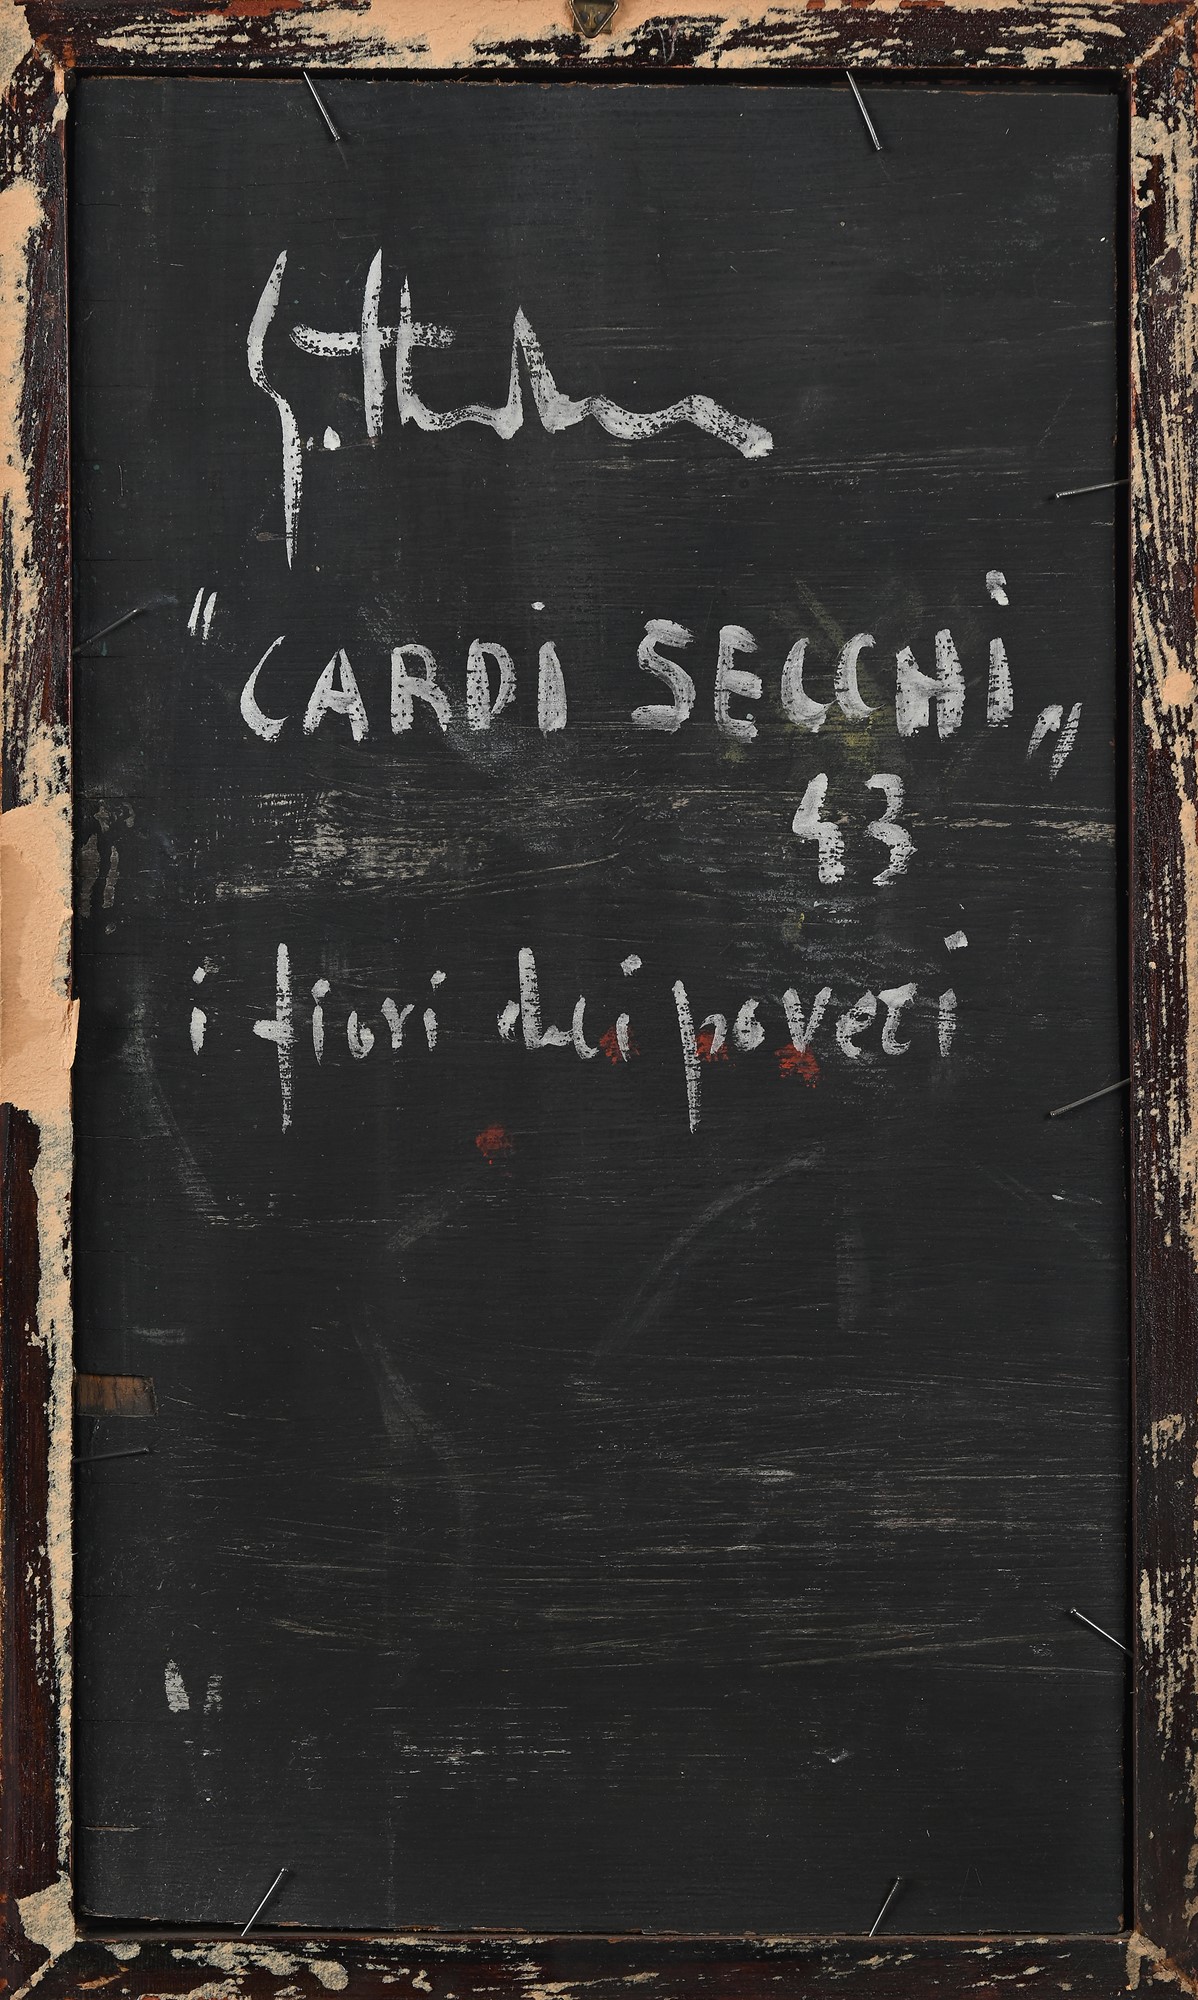 "CARDi SECCHi„
43
i fiori dei poveri